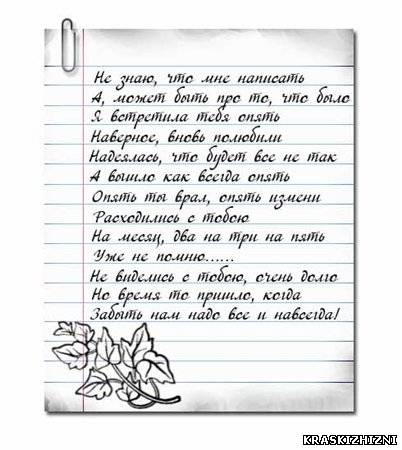 Не знаю, что мне написать
А, может быть про то, что было
Я встретила тебя опять
Наверное, вновь полюбили
Надеялась, что будет все не так
А вышло как всегда опять
Опять ты врал, опять измени
Расходились с тобою
На месяц, два на три на пять
Уже не помню......
Не виделись с тобою, очень долго
Но время то пришло, когда
Забыть нам надо все и навсегда!
KRASKIZHIZNI